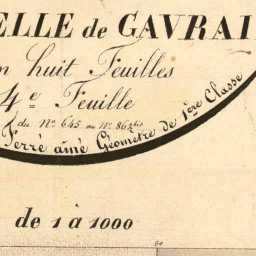 ELLE de GAVRAI
n huit Feuilles
4e Feuille
du No 645 au No 862 bis
Ferré aîné Géometre de 1ère Classe
de 1 à 1000